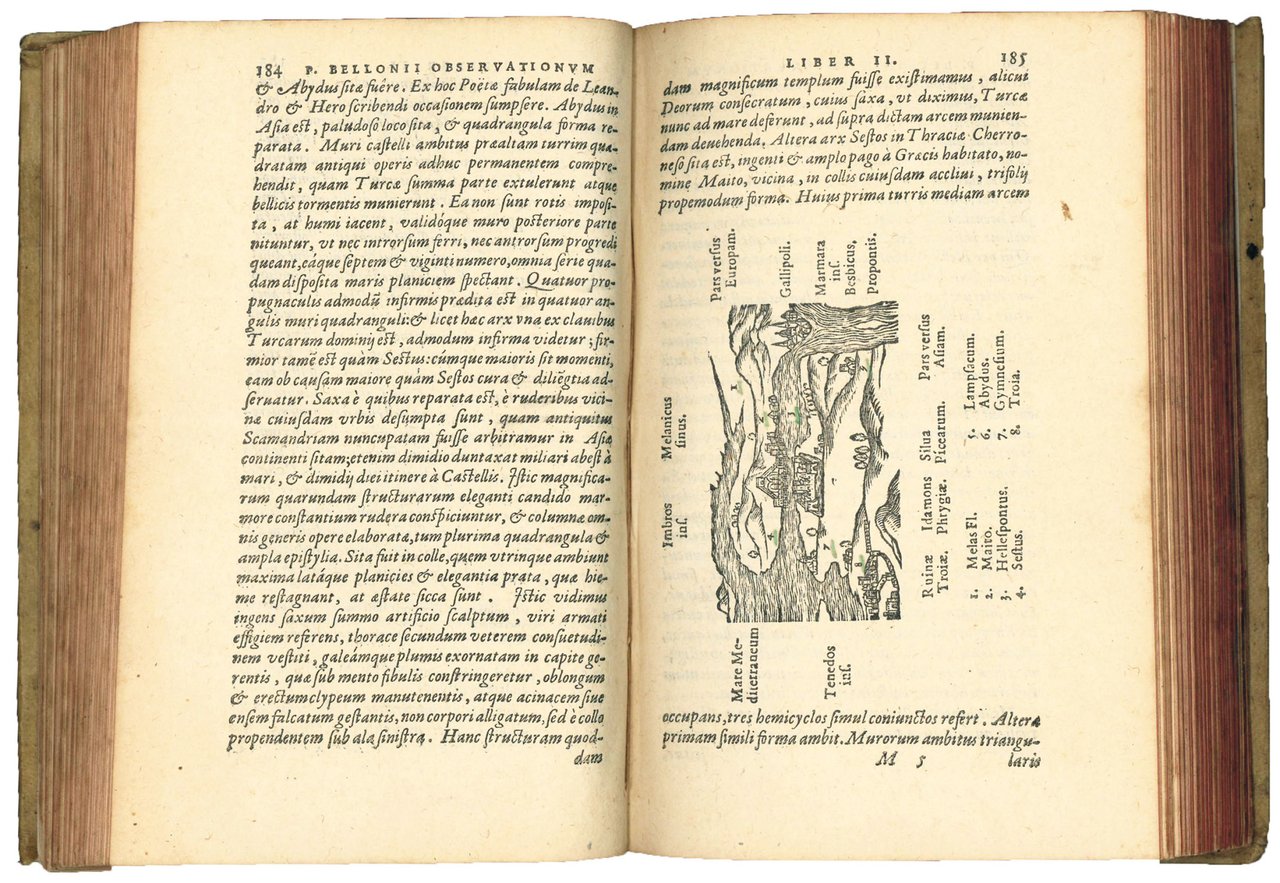 184 P. BELLONII OBSERVATIONVM
& Abydus sitæ fuêre. Ex hoc Poëtæ fabulam de Lean-
dro & Hero scribendi occasionem sumpsêre. Abydus in
Asia est, paludoso loco sita, & quadrangula forma re-
parata. Muri castelli ambitus præaltam turrim qua-
dratam antiqui operis adhuc permanentem compre-
hendit, quam Turcæ summa parte extulerunt atque
bellicis tormentis munierunt. Ea non sunt rotis imposi-
ta, at humi iacent, validóque muro posteriore parte
nituntur, vt nec introrsum ferri, nec antrorsum progredi
queant, eáque septem & viginti numero, omnia serie qua-
dam disposita maris planiciem spectant. Quatuor pro-
pugnaculis admodũ infirmis prædita est in quatuor an-
gulis muri quadranguli: & licet hæc arx vna ex clauibus
Turcarum dominij est, admodum infirma videtur; fir-
mior tamẽ est quàm Sestus: cúmque maioris sit momenti,
eam ob causam maiore quàm Sestos cura & diligẽtia ad-
seruatur. Saxa è quibus reparata est, è ruderibus vici-
næ cuiusdam vrbis desumpta sunt, quam antiquitus
Scamandriam nuncupatam fuisse arbitramur in Asia
continenti sitam; etenim dimidio duntaxat miliari abest à
mari, & dimidij diei itinere à Castellis. Istic magnifica-
rum quarundam structurarum eleganti candido mar-
more constantium rudera conspiciuntur, & columnæ om-
nis generis opere elaboratæ, tum plurima quadrangula &
ampla epistylia. Sita fuit in colle, quem vtrinque ambiunt
maxima latáque planicies & elegantia prata, quæ hie-
me restagnant, at æstate sicca sunt. Istic vidimus
ingens saxum summo artificio scalptum, viri armati
effigiem referens, thorace secundum veterem consuetudi-
nem vestiti, galeámque plumis exornatam in capite ge-
rentis, quæ sub mento fibulis constringeretur, oblongum
& erectum clypeum manutenentis, atque acinacem siue
ensem falcatum gestantis, non corpori alligatum, sed è collo
propendentem sub ala sinistra. Hanc structuram quod-
dam
LIBER II. 185
dam magnificum templum fuisse existimamus, alicui
Deorum consecratum, cuius saxa, vt diximus, Turcæ
nunc ad mare deferunt, ad supra dictam arcem munien-
dam deuehenda. Altera arx Sestos in Thraciæ Cherro-
neso sita est, ingenti & amplo pago à Græcis habitato, no-
mine Maito, vicina, in collis cuiusdam accliui, trifolij
propemodum forma. Huius prima turris mediam arcem
Pars versus
Europam.
Gallipoli.
Marmara
ins.
Besbicus,
Propontis.
Imbros
ins.
Melanicus
sinus.
Mare Me-
diterraneum
Tenedos
ins.
Ruinæ
Troiæ.
Idamons
Phrygiæ.
Silua
Picearum.
Pars versus
Asiam.
1. Melas Fl.
2. Maito.
3. Hellespontus.
4. Sestus.
5. Lampsacum.
6. Abydus.
7. Gymnesium.
8. Troia.
1
2
3
7
8
occupans, tres hemicyclos simul coniunctos refert. Altera
primam simili forma ambit. Murorum ambitus triangu-
M 5 laris